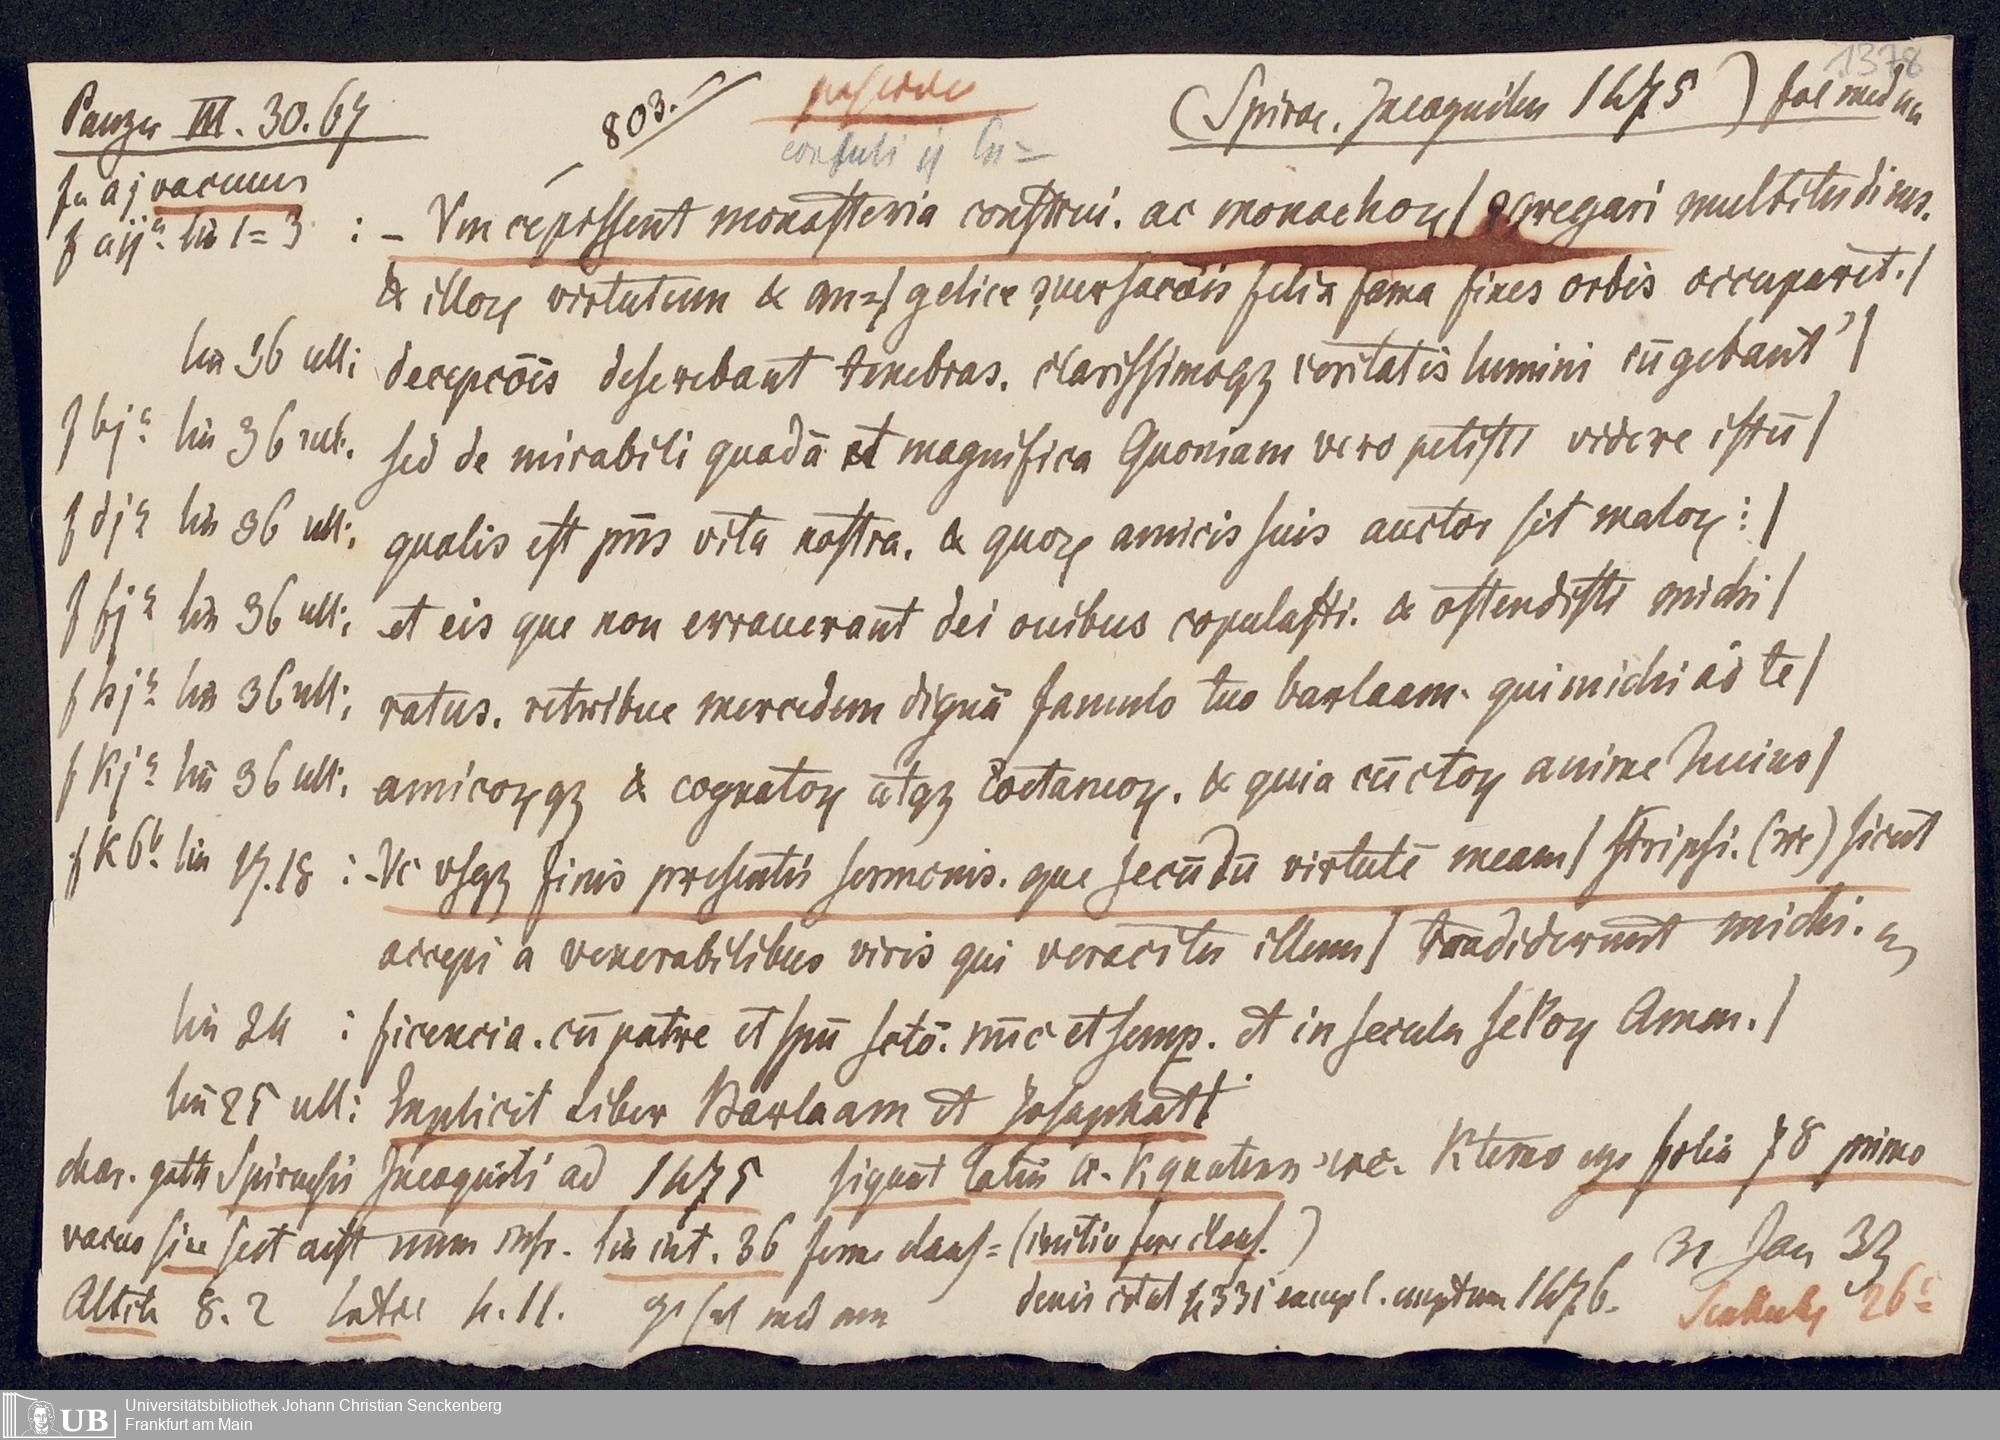 1378
Panzer III. 30. 67
803.
(Spirae. Incognitus 1475) fol med
consuli
fu aj vacuum
f aij a lin 1=3 : - Vm cepissent monasteria construi. ac monachoꝝ / ɔgregari multitudines.
& illoꝝ virtutum & an=/gelice ɔuersacōis felix fama fines orbis occuparēt. /
lin 36 ult: decepcōis deserebant tenebras. clarissimoqꝫ veritatis lumini iūgebant' /
f bj a lin 36 ult. sed de mirabili quadā et magnifica Quoniam vero petisti videre istū /
f dj a lin 36 ult: qualis est pn̄s vita nostra. & quoꝝ amicis suis auctor sit maloꝝ : /
f fj a lin 36 ult: et eis que non errauerant dei ouibus copulasti. & ostendisti michi /
f hj a lin 36 ult: ratus. retribue mercedem dignā famulo tuo barlaam. qui michi ad te /
f kj a lin 36 ult: amicoꝝqꝫ & cognatoꝝ atqꝫ coetaneoꝝ. & quia cūctoꝝ anime huius /
f k6 b lin 17.18 : -Vc vsqꝫ finis presentis sermonis. que secūdū virtutē meam / stripsi. (sic) sicut
accepi a venerabilibus viris qui veraciter illum / tradiderunt michi.
lin 24 : ficencia. cū patre et spū scto. nūc et semp. et in secula seloꝝ Amen. /
lin 25 ult: Explicit Liber Barlaam et Josaphatt.
char. goth Spirensis Incogniti ad 1475 signat latin a-k quatern k terno ergo folia 78 primo
vacuo sine cust num lin int. 36 (initio fere )
Altit 8.2 latit 4.11. fol med denis citat exempl. emptum 1476.
31 Jan 33
26
Universitätsbibliothek Johann Christian Senckenberg
Frankfurt am Main
UB